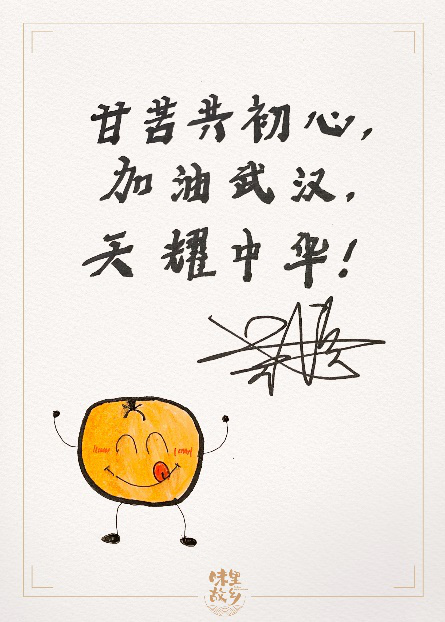 甘苦共初心，
加油武汉，
天耀中华！
味里
故乡